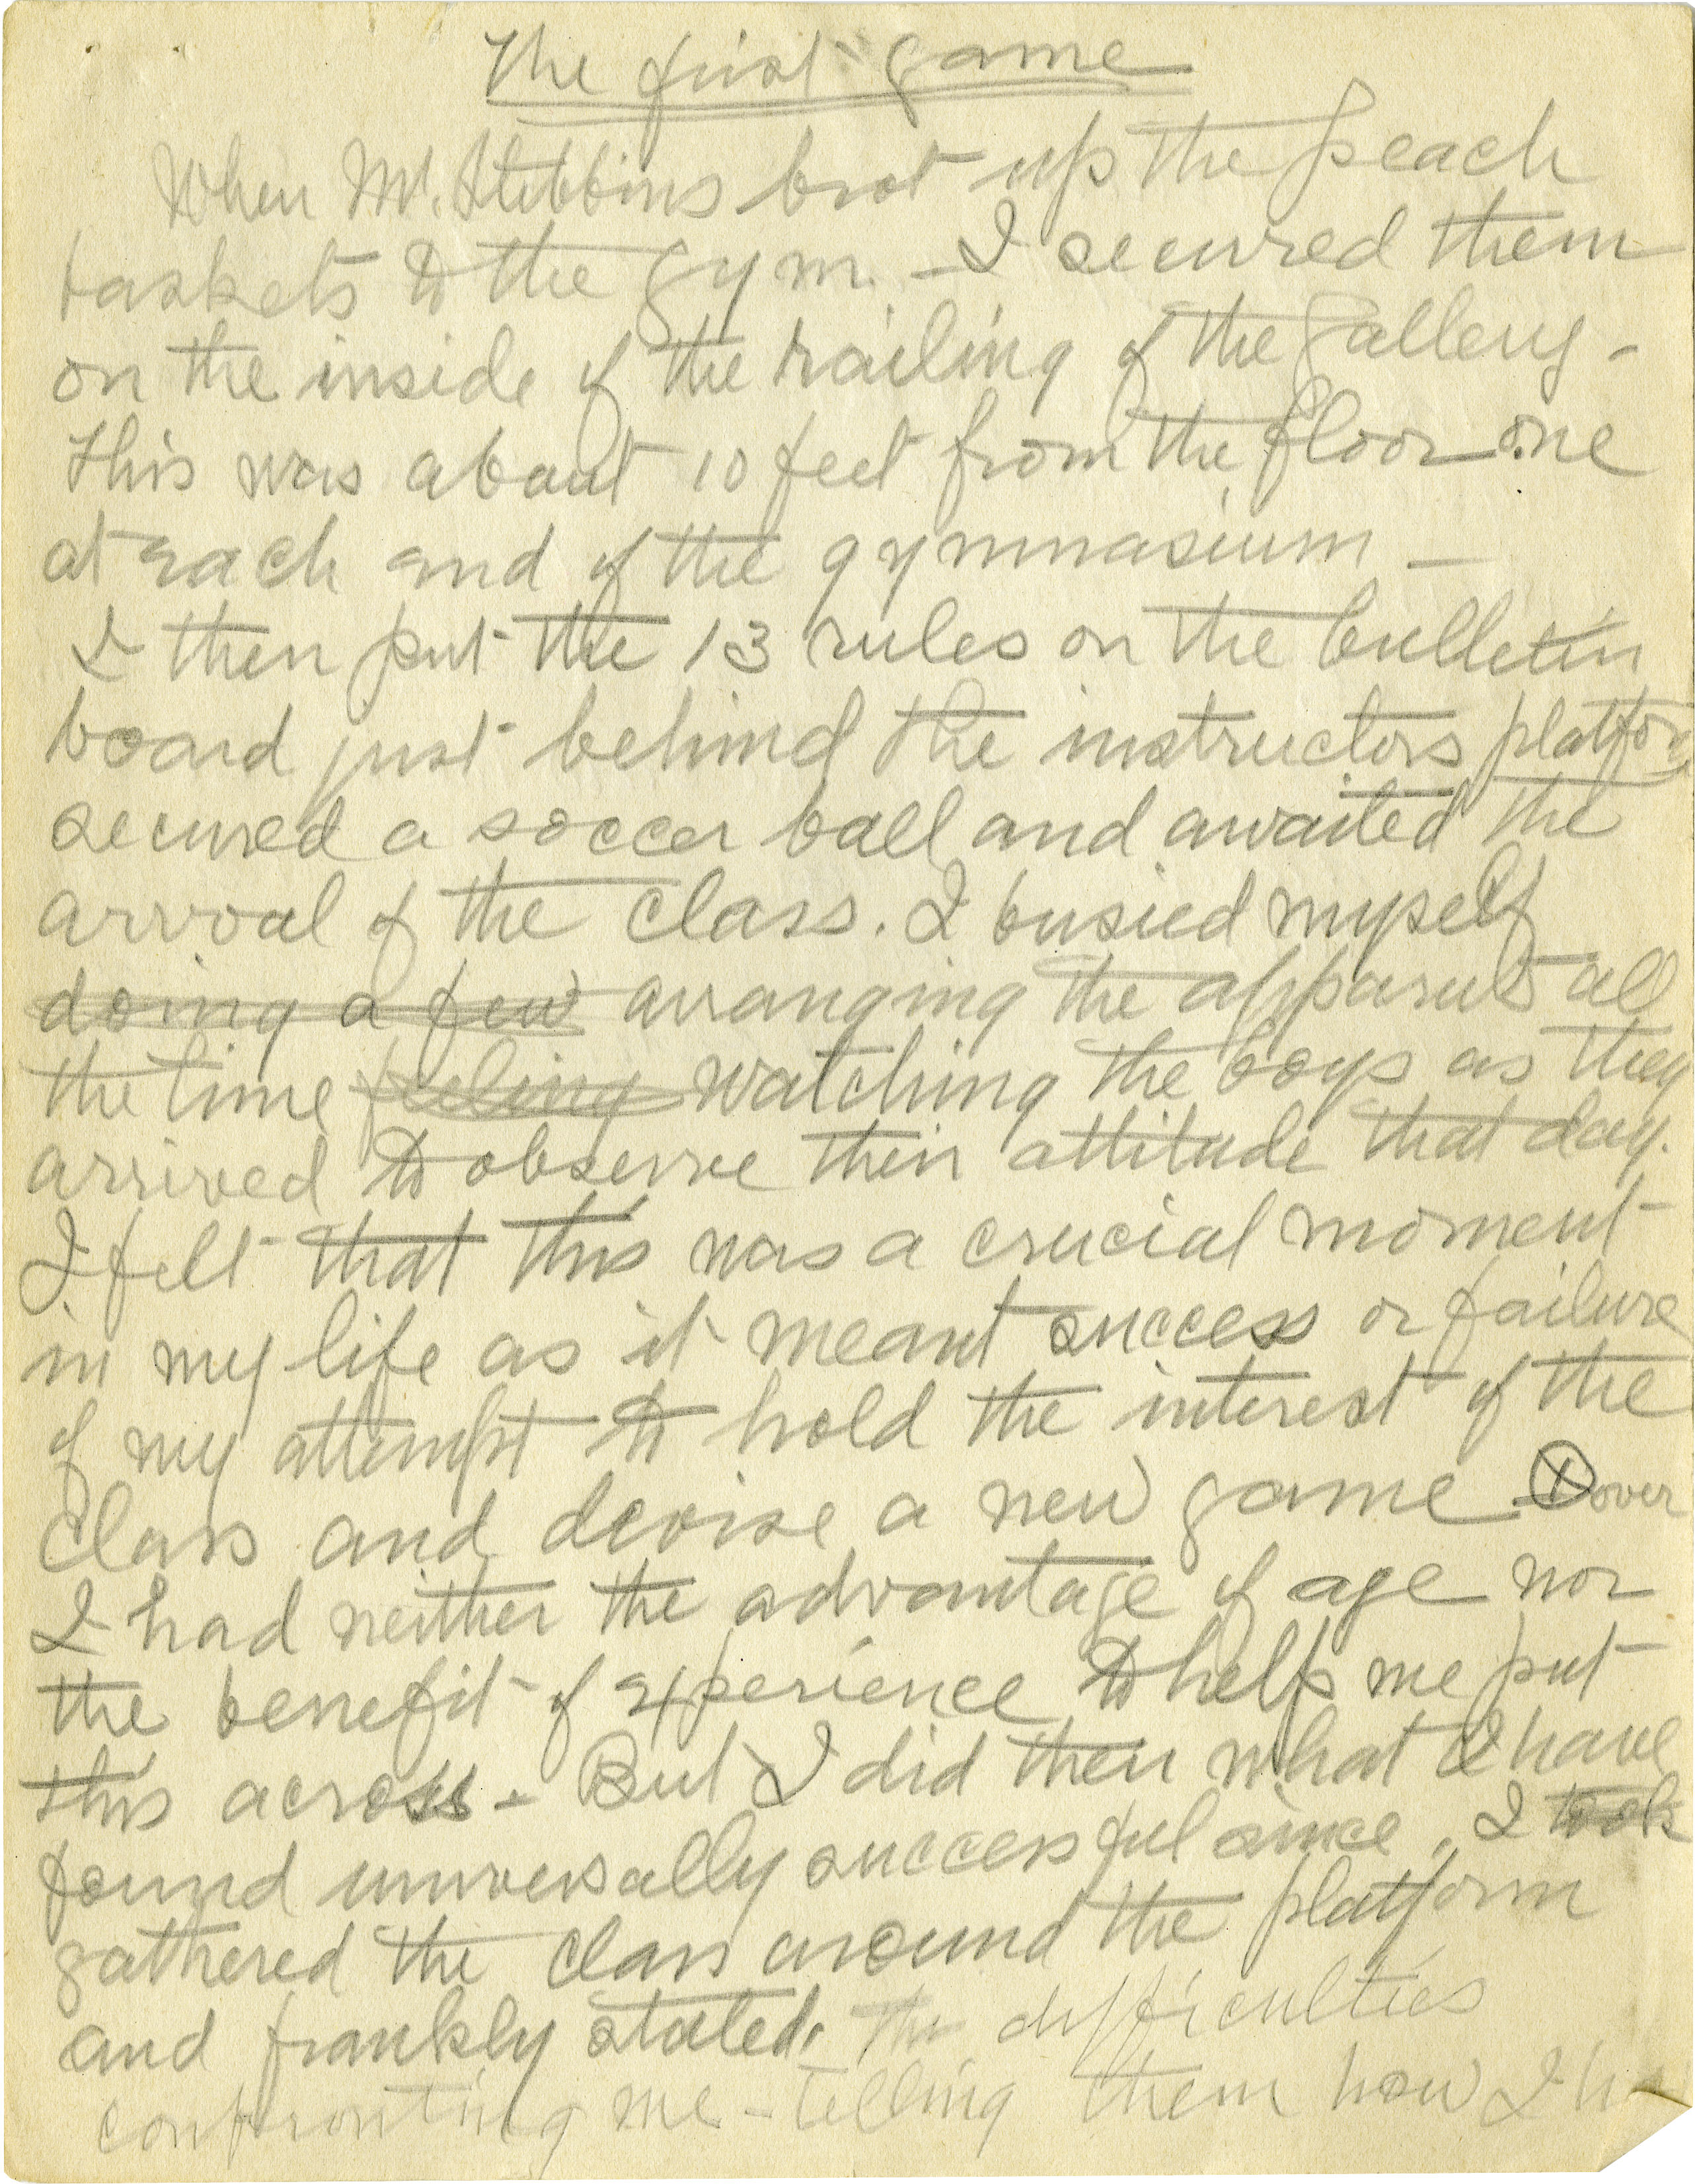 The first game
When Mr. Stebbins brot up the peach
baskets to the gym. - I secured them
on the inside of the railing of the gallery -
This was about 10 feet from the floor one
at each end of the gymnasium -
I then put the 13 rules on the bulletin
board just behind the instructors platform
secured a soccer ball and awaited the
arrival of the class. I busied myself
doing a few arranging the apparus all
the time feeling watching the boys as they
arrived to observe their attitude that day.
I felt that this was a crucial moment
in my life as it meant success or failure
of my attempt to hold the interest of the
class and devise a new game. ⊗ over
I had neither the advantage of age nor
the benefit of experience to help me put
this across - But I did then what I have
found universally successful since, I took
gathered the class around the platform
and frankly stated. The difficulties
confronting me - telling them how I